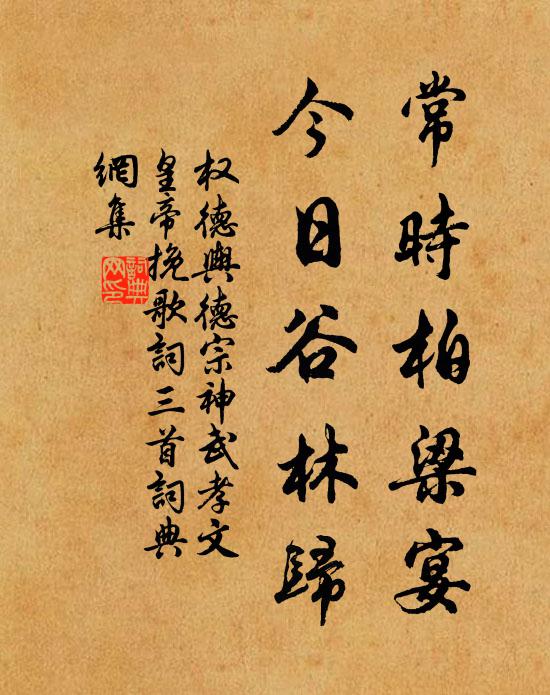 常時柏梁宴
今日谷林歸
权德輿德宗神武孝文
皇帝挽歌詞三首詞典
網集
詞典
网印